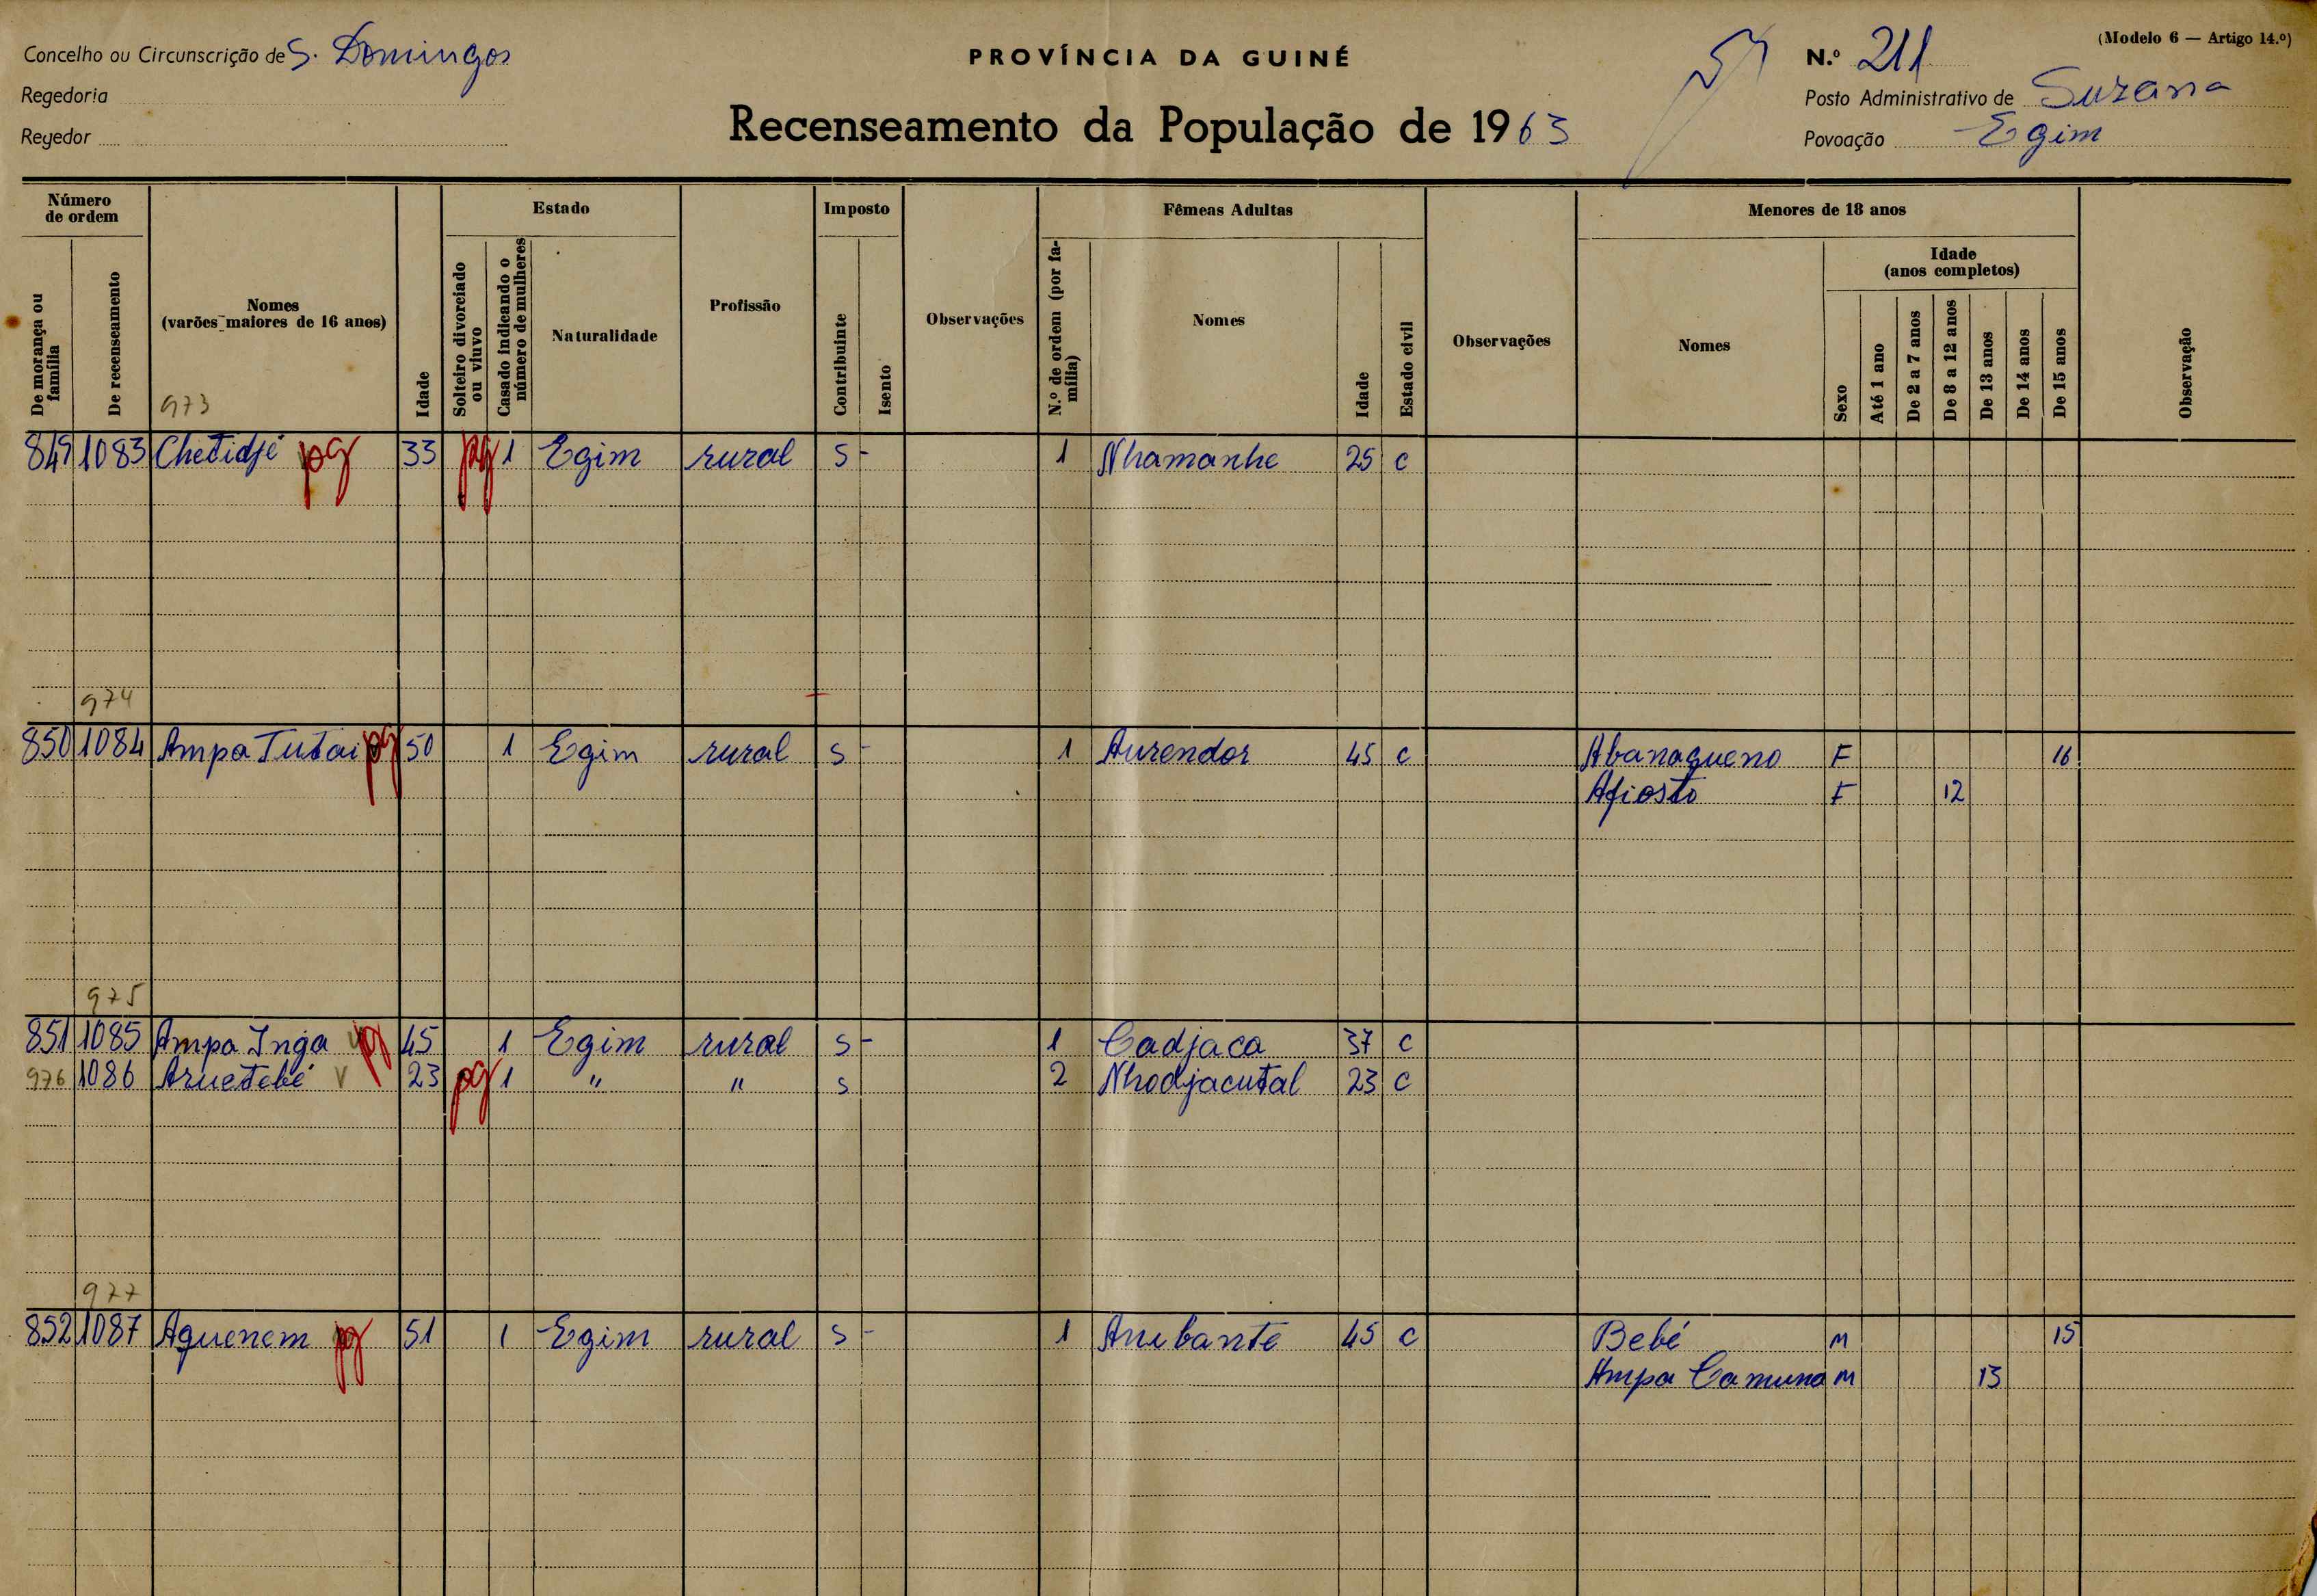 Concelho ou Circunscrição de S. Domingos
Regedoria
Regedor
PROVÍNCIA DA GUINÉ
Recenseamento da População de 1963
(Modelo 6 — Artigo 14.º)
N.º 211
Posto Administrativo de Suzana
Povoação Egim
Número de ordem
De morança ou família
De recenseamento
Nomes
(varões maiores de 16 anos)
973
Idade
Estado
Solteiro divorciado ou viuvo
Casado indicando o número de mulheres
Naturalidade
Profissão
Imposto
Contribuinte
Isento
Observações
Fêmeas Adultas
N.º de ordem (por família)
Nomes
Idade
Estado civil
Observações
Menores de 18 anos
Nomes
Sexo
Idade
(anos completos)
Até 1 ano
De 2 a 7 anos
De 8 a 12 anos
De 13 anos
De 14 anos
De 15 anos
Observação
849 1083 Chetidjé pg 33 pg 1 Egim rural S - 1 Nhamanhe 25 C
974
850 1084 Ampa Tutai pg 50 1 Egim rural S - 1 Aurendor 45 C Abanaqueno F 16
Afiosto F 12
975
851 1085 Ampa Inga pg 45 1 Egim rural S - 1 Cadjaca 37 C
976 1086 Aruetebé V 23 pg 1 " " S 2 Nhodjacutal 23 C
977
852 1087 Aquenem pg 51 1 Egim rural S - 1 Anibante 45 C Bebé M 15
Ampa Camuna M 13